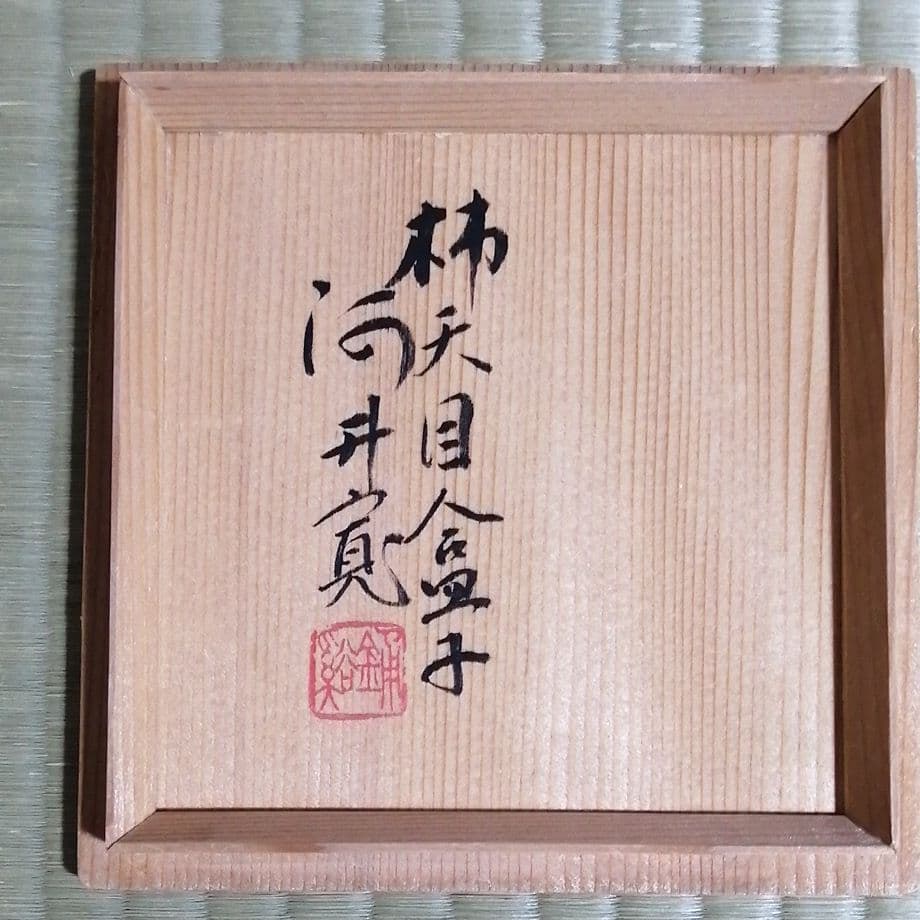 柿天目盒子
河井寛